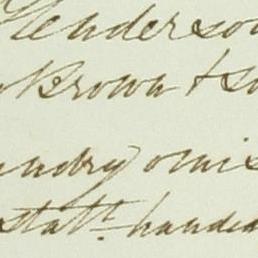 Henderson
Brown & S
undry omis
statt. handed